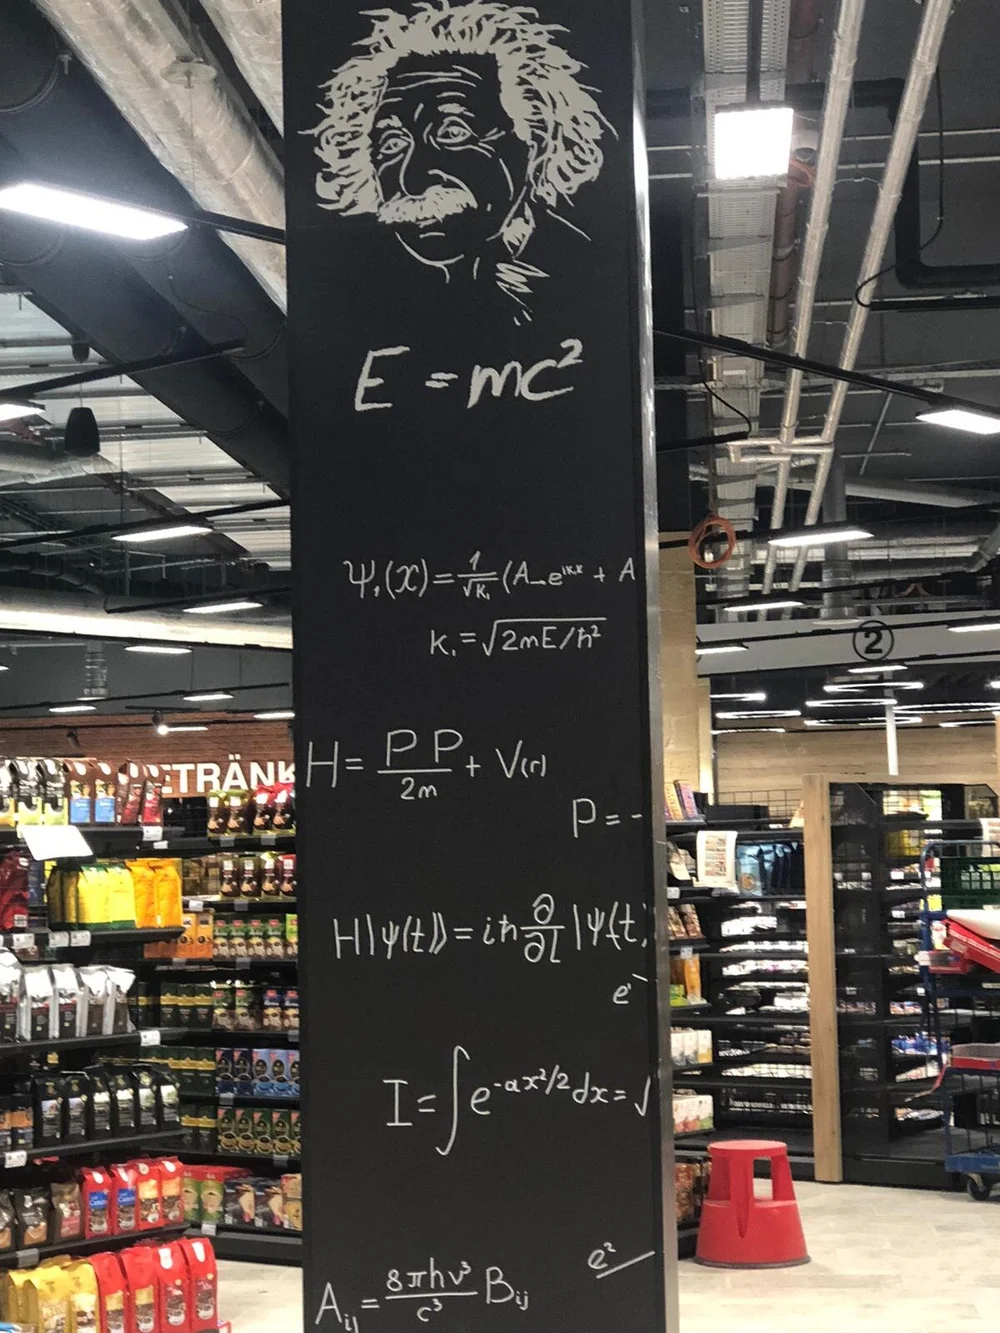 E = mc²
Ψ₁(x) = 1/√k₁ (A→e^ik₁x + A
k₁ = √2mE/ħ²
②
ETRÄNK
H = PP/2m + V(r)
P = -
H|ψ(t)⟩ = iħ ∂/∂t |ψ(t)
e^i
I = ∫ e^-αx²/2 dx = √
e²
A_ij = 8πhν³/c³ B_ij